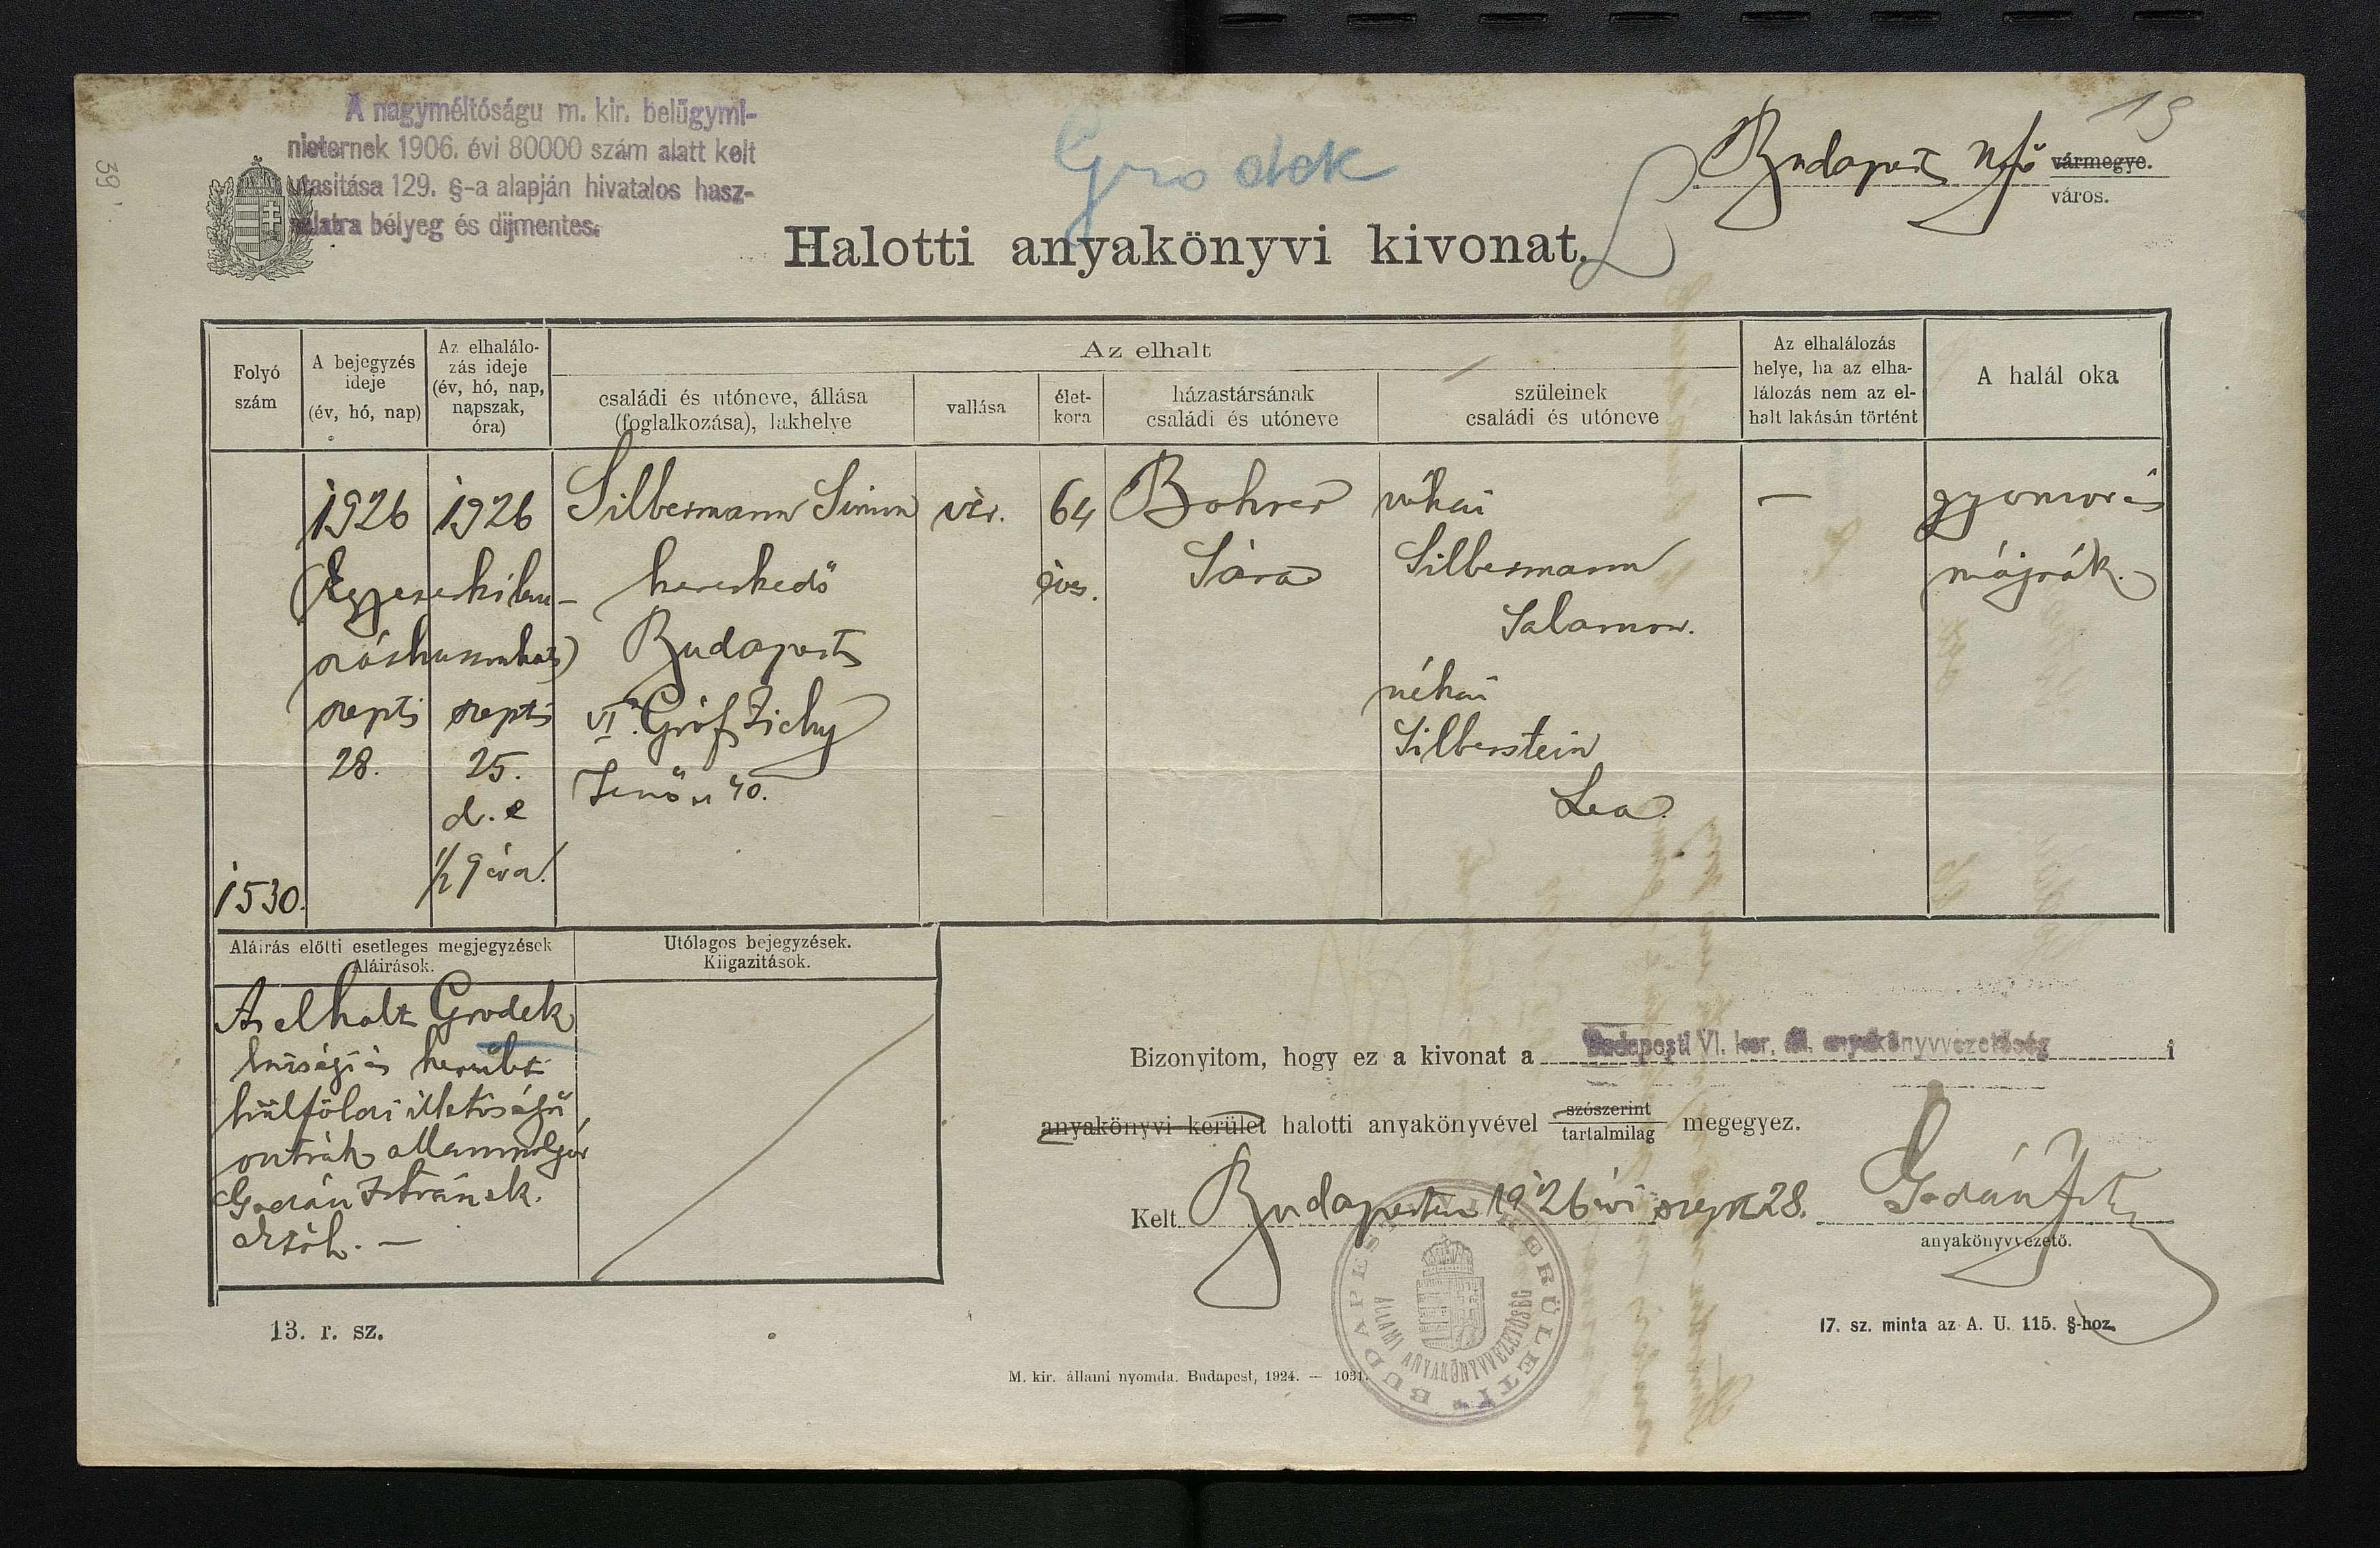 A nagyméltóságu m. kir. belügymi-
niszternek 1906. évi 80000 szám alatt kelt
utasitása 129. §-a alapján hivatalos hasz-
nálatra bélyeg és dijmentes.
39
Grodek
19
Budapest szfő vármegye.
város.
Halotti anyakönyvi kivonat.
Folyó szám
A bejegyzés ideje (év, hó, nap)
Az elhalálo-zás ideje (év, hó, nap, napszak, óra)
Az elhalt
családi és utóneve, állása (foglalkozása), lakhelye
vallása
élet-kora
házastársának családi és utóneve
szüleinek családi és utóneve
Az elhalálozás helye, ha az elha-lálozás nem az el-halt lakásán történt
A halál oka
1530.
1926
(Egyezerkilen-
száshuszonhat)
szept
28.
1926
szept
25.
d. e
1/2 9 óra.
Silbermann Simon
kereskedő
Budapest
VI. Gróf Zichy
Jenő u 40.
izr.
64
éves.
Bohrer
Sára
néhai
Silbermann
Salamon.
néhai
Silberstein
Lea.
—
gyomor és
májrák.
Aláirás előtti esetleges megjegyzések
Aláirások.
Utólagos bejegyzések.
Kiigazitások.
Az elhalt Grodek
községi és
külföldi illetőségű
osztrák állampolgár
Godán István s. k.
Bizonyitom, hogy ez a kivonat a Budapesti VI. ker. áll. anyakönyvvezetőség i
anyakönyvi kerület halotti anyakönyvével szószerint
tartalmilag megegyez.
Kelt Budapesten 1926 évi szept 28. Godán Ist
anyakönyvvezető.
BUDAPEST VI. KERÜLETI
ÁLLAMI ANYAKÖNYVVEZETŐSÉG
13. r. sz.
17. sz. minta az A. U. 115. §-hoz.
M. kir. állami nyomda. Budapest, 1924. — 1031.